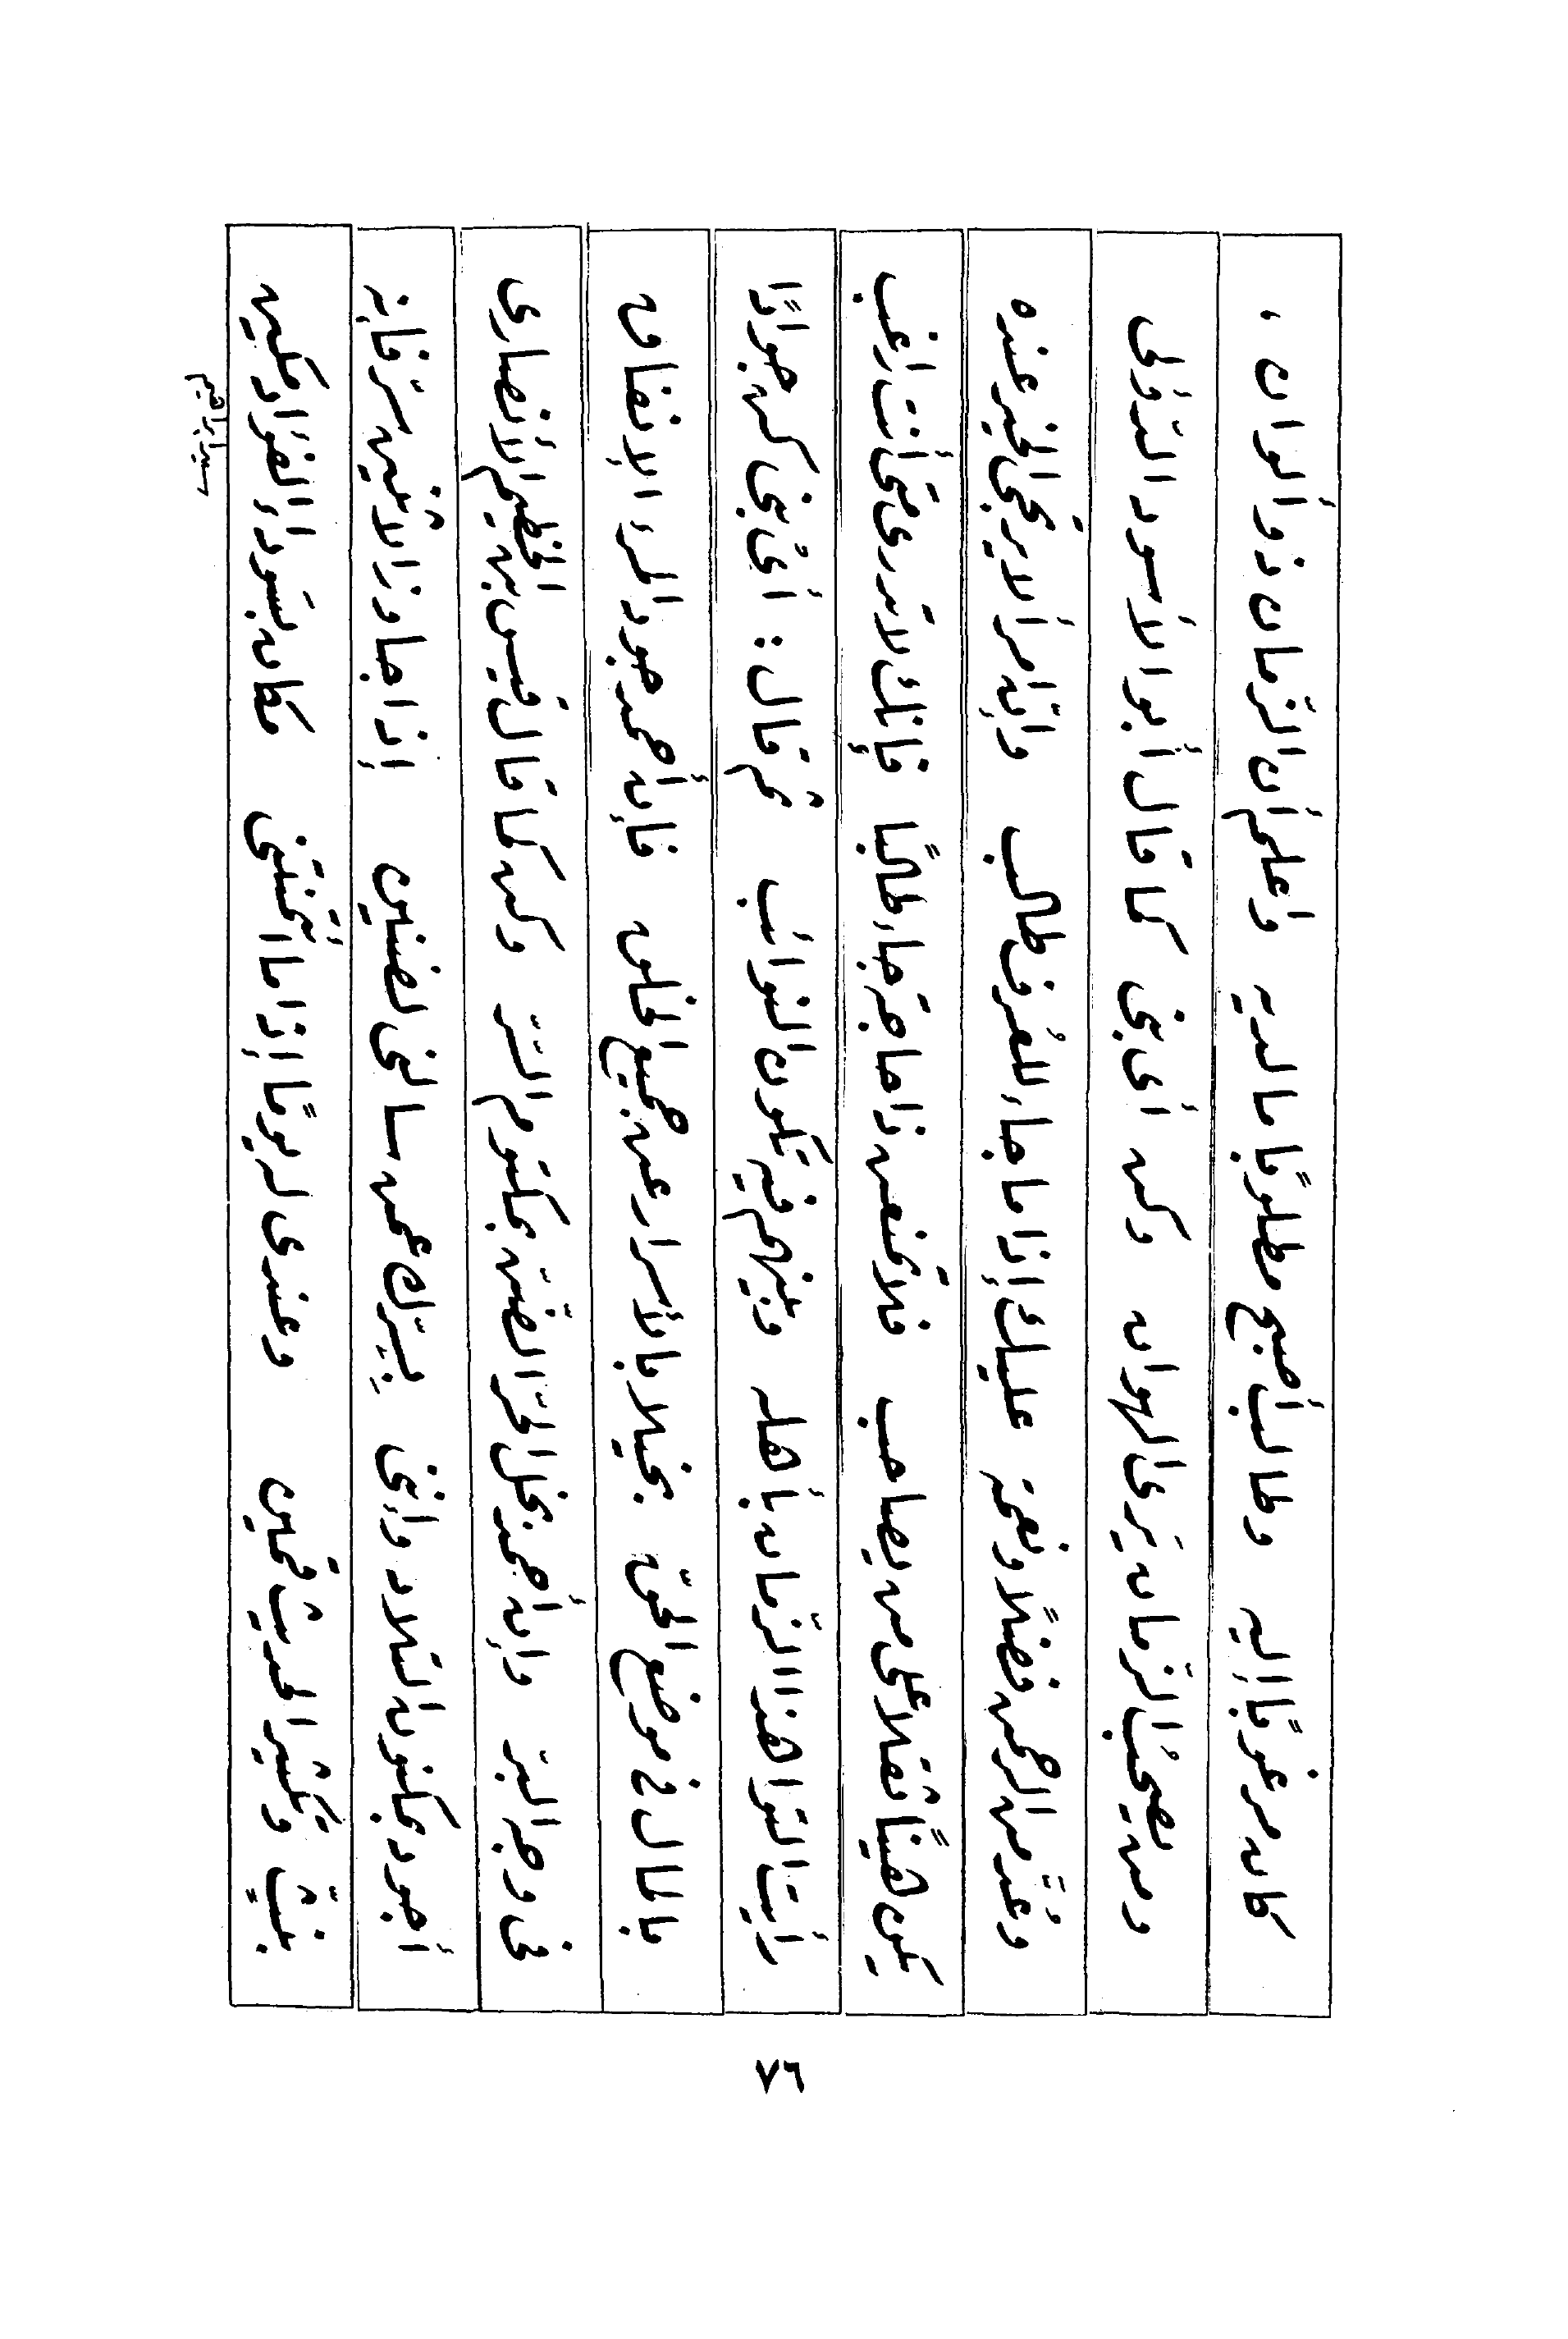 كان مرغوبًا إليه وطالب أصبح مطلوبًا ما لديه واعلم أن الزّمان ذو ألوان ،
ومن يصحبُ الزّمان يَرى الهوان وكن أى بنى كما قال أبو الأسود الدّؤلى
وعُدَّ من الرحمن فضلًا ونعمة عليك إذا ما جاء للعُرف طالب وإنّ امرأ لا يرتجّى الخير عنده
يكن هيّنًا ثقلا على من يصاحب فلا تمنعن ذا حاجة جاء طالبًا فإنك لا تدرى متى أنت راغب
رأيت التوا هذا الزّمان بأهله وبينهم فيه تكون النوائب ثم قال : أىْ بنى كن جوادًا
بالمال فى موضع الحقّ بخيلا بالأسرار عن جميع الخلق فإن أحمد جود المرء الإنفاق
فى وجه البرّ وإن أحمد بخل الحرّ الضّنّ بمكتوم السّرّ وكن كما قال قيس بن الخطيم الأنصارى
أجود بمكنون التلاد وإننى بسِرّك عمن سالنى لضنين إذا جاوز الاثنين سرّ فإنه
بنثٍّ وتكثير الحديث قمين وعندى له يومًا إذا ما ائتمنتنى مكان بسَوداء الفؤاد مكين
سيد إبراهيم